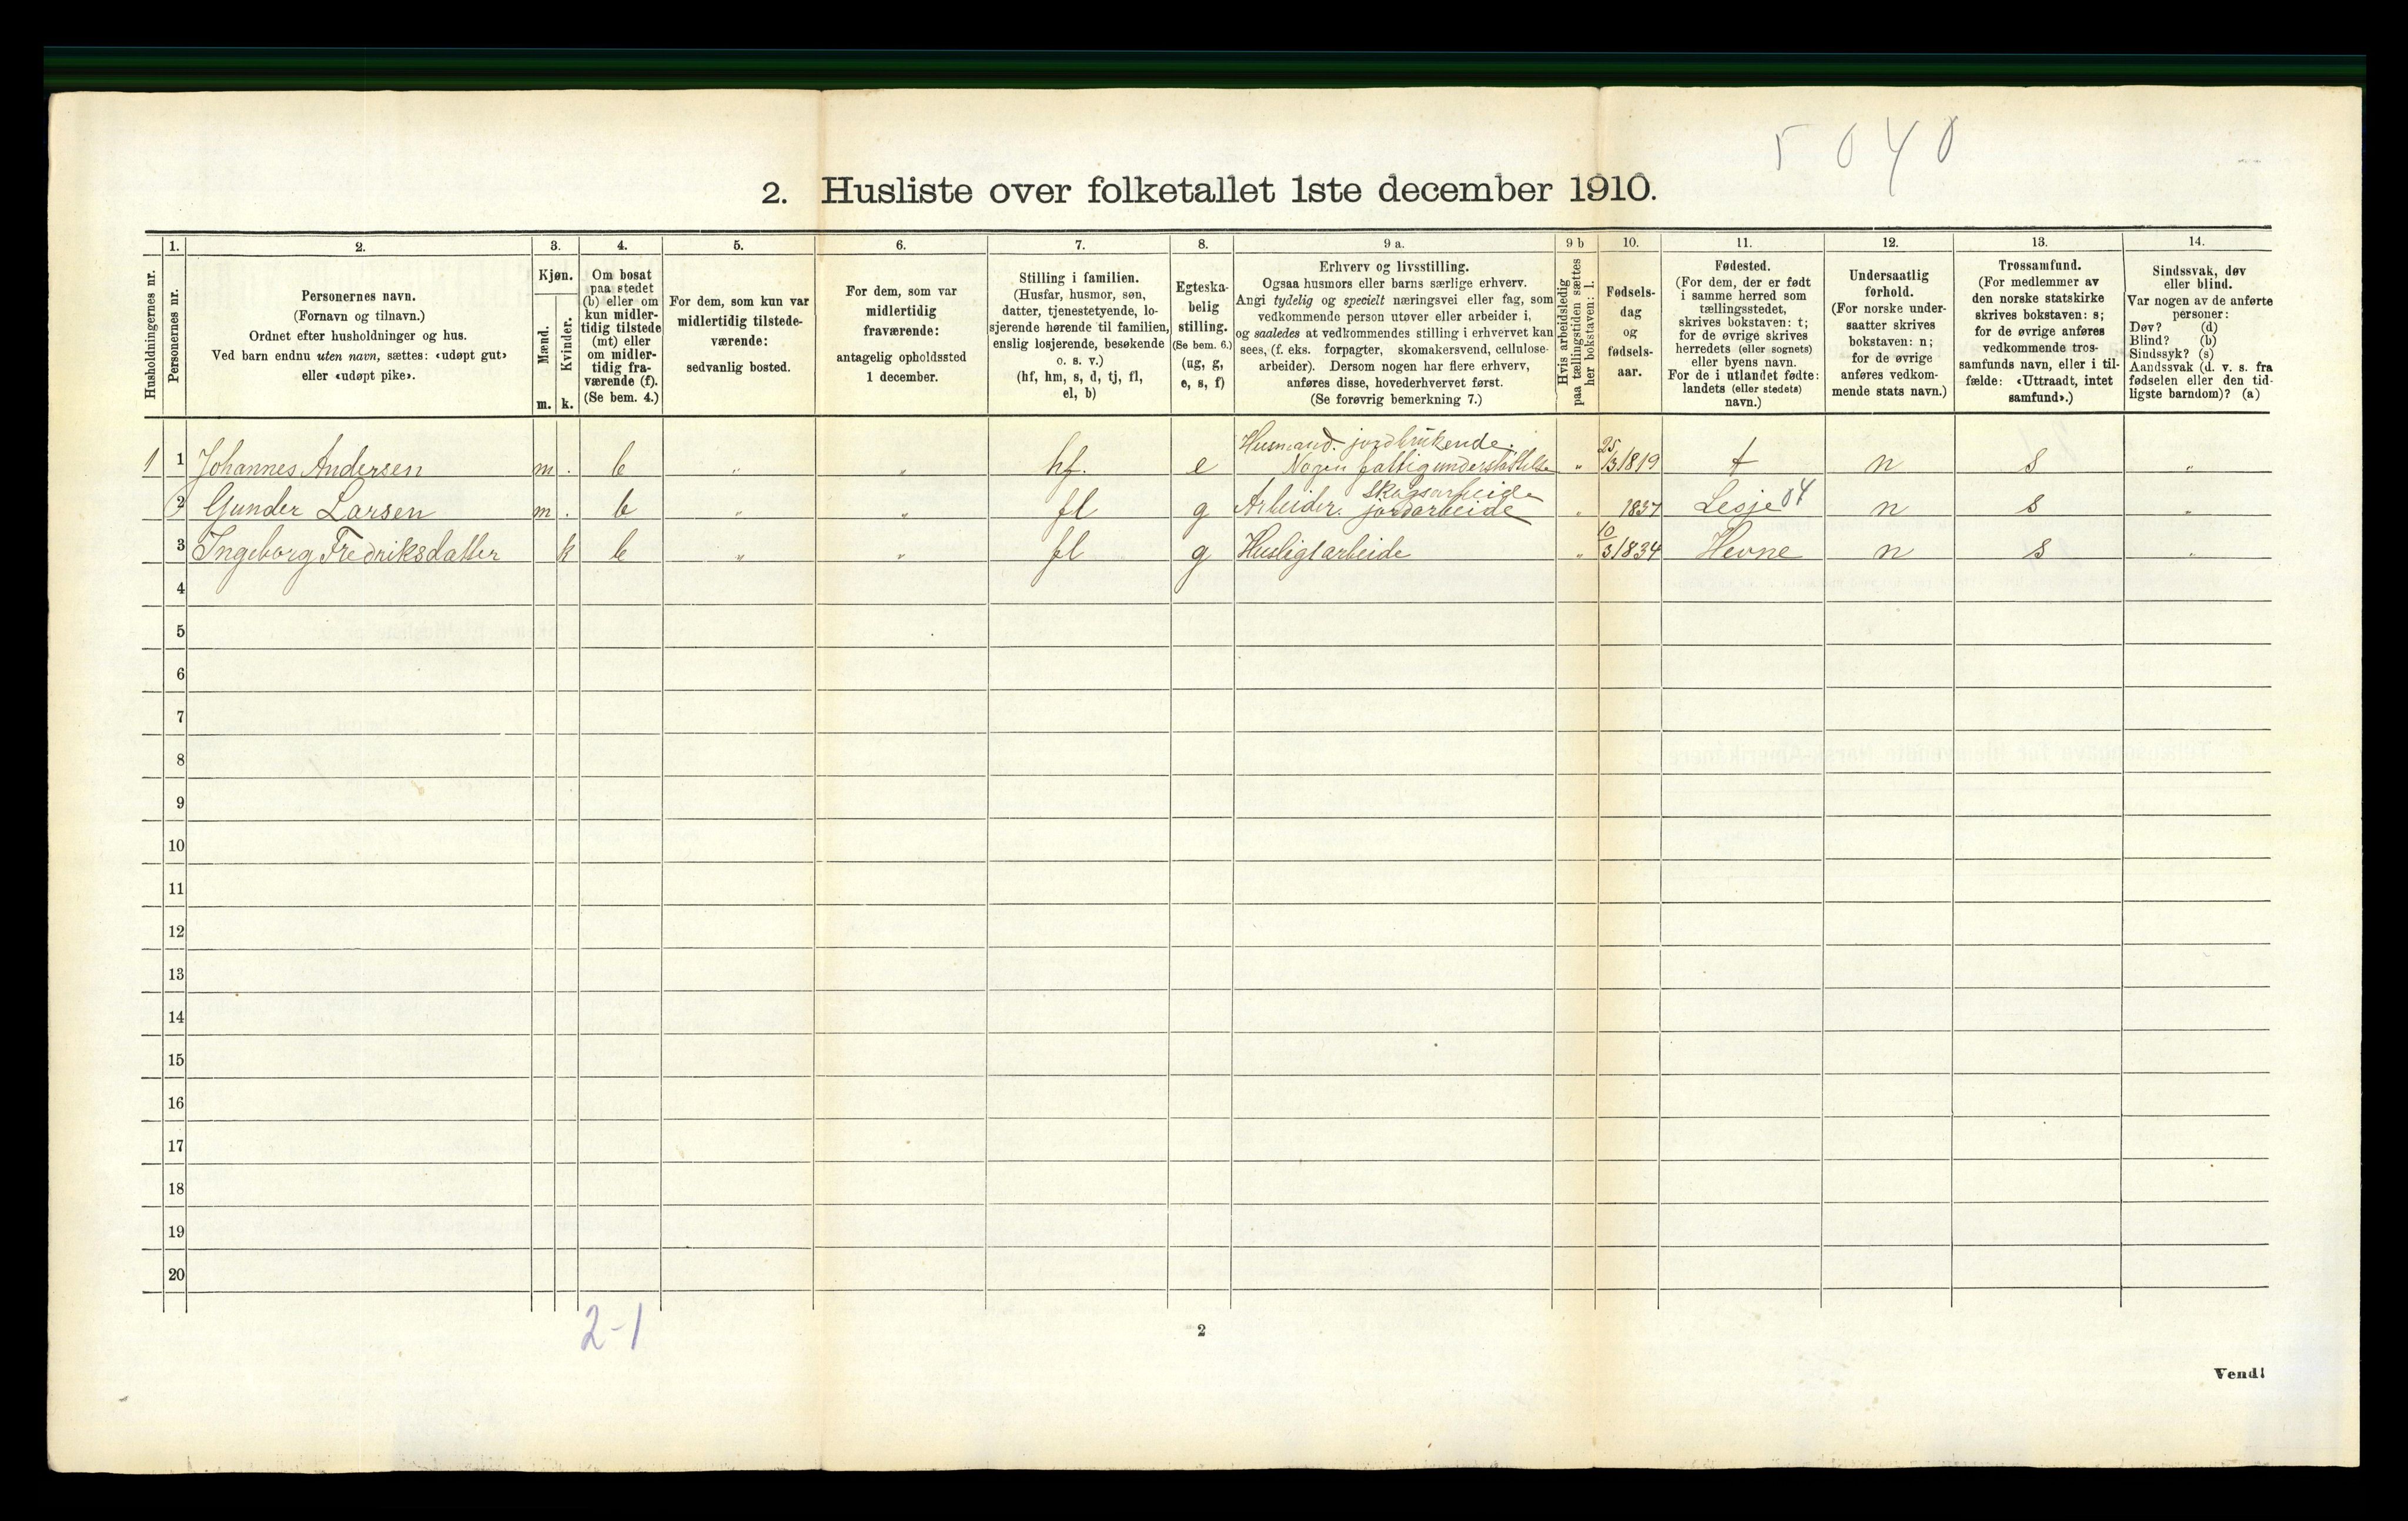 5 0 4 0
2. Husliste over folketallet 1ste december 1910.
Husholdningernes nr.
1.
Personernes nr.
2.
Personernes navn.
(Fornavn og tilnavn.)
Ordnet efter husholdninger og hus.
Ved barn endnu uten navn, sættes: «udøpt gut»
eller «udøpt pike».
3.
Kjøn.
Mænd.
Kvinder.
m. k.
4.
Om bosat
paa stedet
(b) eller om
kun midler-
tidig tilstede
(mt) eller
om midler-
tidig fra-
værende (f).
(Se bem. 4.)
5.
For dem, som kun var
midlertidig tilstede-
værende:
sedvanlig bosted.
6.
For dem, som var
midlertidig
fraværende:
antagelig opholdssted
1 december.
7.
Stilling i familien.
(Husfar, husmor, søn,
datter, tjenestetyende, lo-
sjerende hørende til familien,
enslig losjerende, besøkende
o. s. v.)
(hf, hm, s, d, tj, fl,
el, b)
8.
Egteska-
belig
stilling.
(Se bem. 6.)
(ug, g,
e, s, f)
9 a.
Erhverv og livsstilling.
Ogsaa husmors eller barns særlige erhverv.
Angi tydelig og specielt næringsvei eller fag, som
vedkommende person utøver eller arbeider i,
og saaledes at vedkommendes stilling i erhvervet kan
sees, (f. eks. forpagter, skomakersvend, cellulose-
arbeider). Dersom nogen har flere erhverv,
anføres disse, hovederhvervet først.
(Se forøvrig bemerkning 7.)
9 b
Hvis arbeidsledig
paa tællingstiden sættes
her bokstaven: l.
10.
Fødsels-
dag
og
fødsels-
aar.
11.
Fødested.
(For dem, der er født
i samme herred som
tællingsstedet,
skrives bokstaven: t;
for de øvrige skrives
herredets (eller sognets)
eller byens navn.
For de i utlandet fødte:
landets (eller stedets)
navn.)
12.
Undersaatlig
forhold.
(For norske under-
saatter skrives
bokstaven: n;
for de øvrige
anføres vedkom-
mende stats navn.)
13.
Trossamfund.
(For medlemmer av
den norske statskirke
skrives bokstaven: s;
for de øvrige anføres
vedkommende tros-
samfunds navn, eller i til-
fælde: «Uttraadt, intet
samfund».)
14.
Sindssvak, døv
eller blind.
Var nogen av de anførte
personer:
Døv? (d)
Blind? (b)
Sindssyk? (s)
Aandssvak (d. v. s. fra
fødselen eller den tid-
ligste barndom)? (a)
Husmand. jordbrukende.
1 1 Johannes Andersen m . b „ „ hf. e Nogen fattigunderstøttelse „ 25/3 1819 t n s „
skogsarbeide
2 Gunder Larsen m . b „ „ fl g Arbeider. jordarbeide „ 1837 Lesje 04 n s „
3 Ingeborg Fredriksdatter k b „ „ fl g Husligt arbeide „ 10/3 1834 Hevne n s „
4
5
6
7
8
9
10
11
12
13
14
15
16
17
18
19
20
2-1
2
Vend!